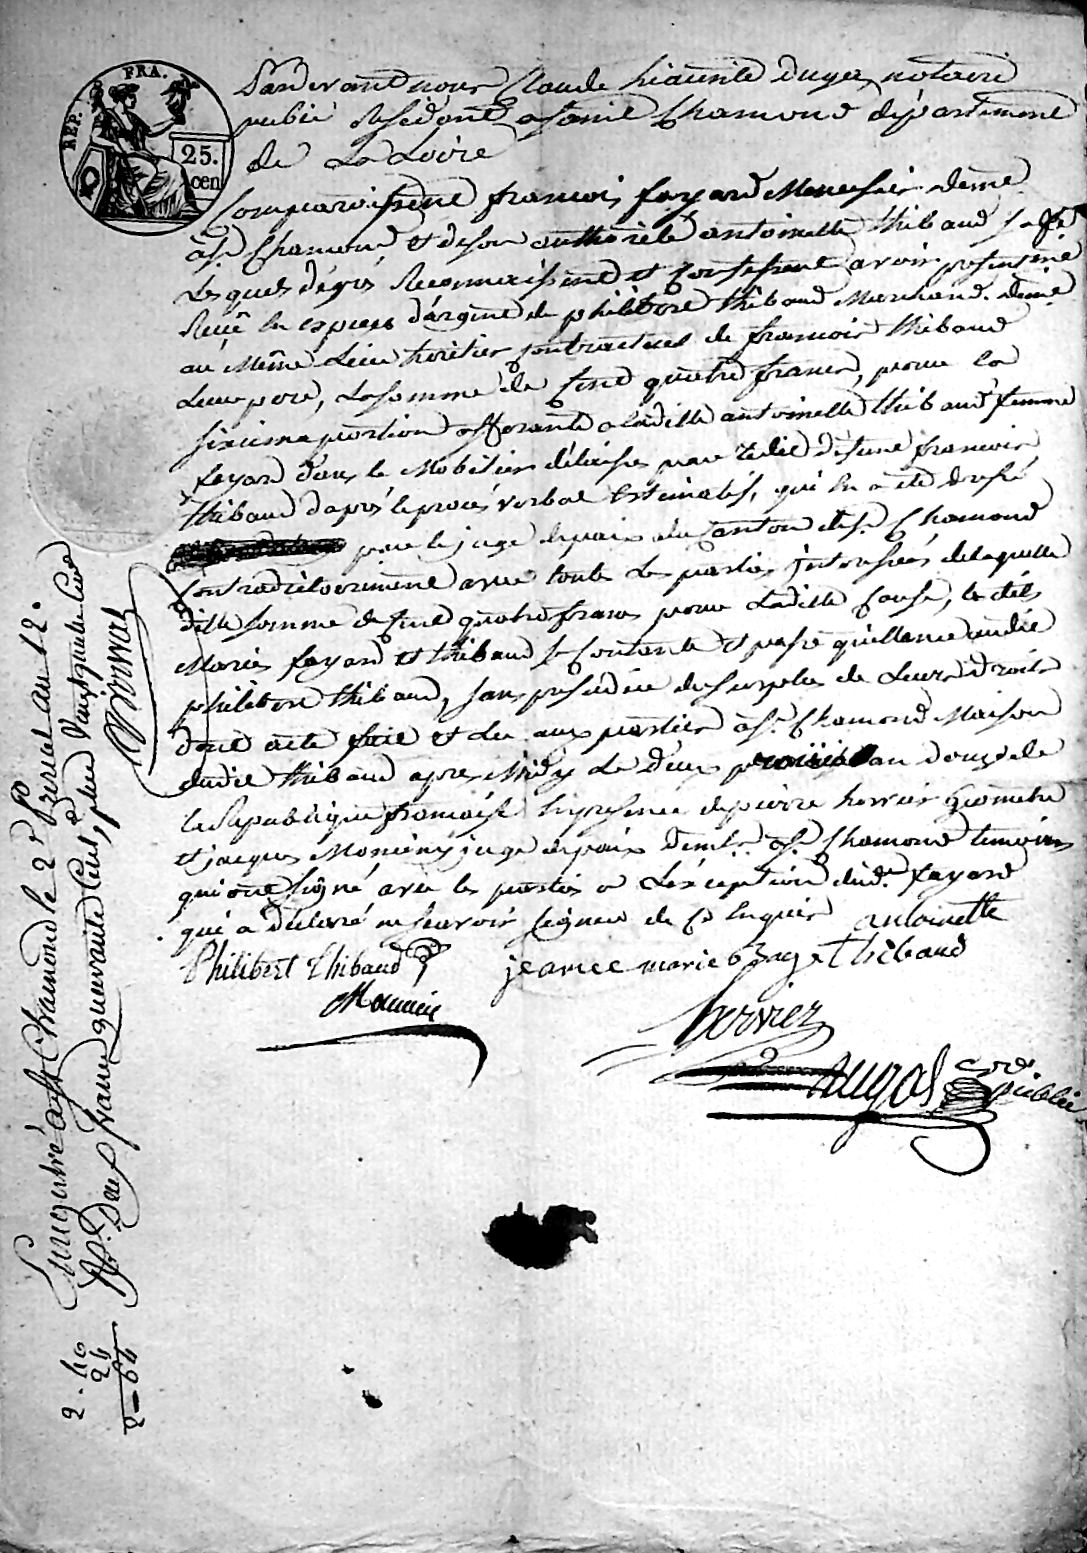 REP. FRA.
25.
cen
Pardevant nous Claude hiacinte dugas notaire
public Residant a saint Chamond département
de La Loire
Comparoissent francois fayard Menusier demt
à St. Chamond et de son authorité antoinette thibaud sa fe
Lesquels dégrés Reconnoissent et Confessent avoir présentemt
Reçu en espèces d'argent de philibert thibaud Marchand demt
au Même Lieu heritier contractuel de francois thibaud
Leur pere, La somme de Cent quatre francs, pour la
sixieme portion afferante a ladite antoinette thibaud femme
fayard dans le Mobilier délaissé par ledit défunt francois
thibaud d'aprés le procés verbal Estimatif, qui en a été dressé
par le juge de paix du Canton de St. Chamond
Contradictoirement avec toutes Les parties intéressées de laquelle
ditte somme de Cent quatre francs pour Laditte Cause, lesdits
Mariés fayard et thibaud se Contente et passe quittance audit
philibert thibaud, sans préjudice du surplus de Leurs droits
dont acte fait et Lu aux parties à St. Chamond Maison
dudit thibaud apres Midy Le deux prairial an douze de
la Republique francaise En presence de pierre hervier Géometre
et jacques Monciny juge de paix demts. à St. Chamond temoins
qui ont signé avec les parties a L'exception dud. fayard
qui a déclaré ne scavoir signer de ce Enquis
antoinette
Philibert Thibaud jeanne marie thibaud
hervier
dugas
public
Enregistré à St Chamond le 2 Prerial an 12.
Rd. Deux francs quarante Cent, plus vingt quatre Cent
2. 40
24
2-64